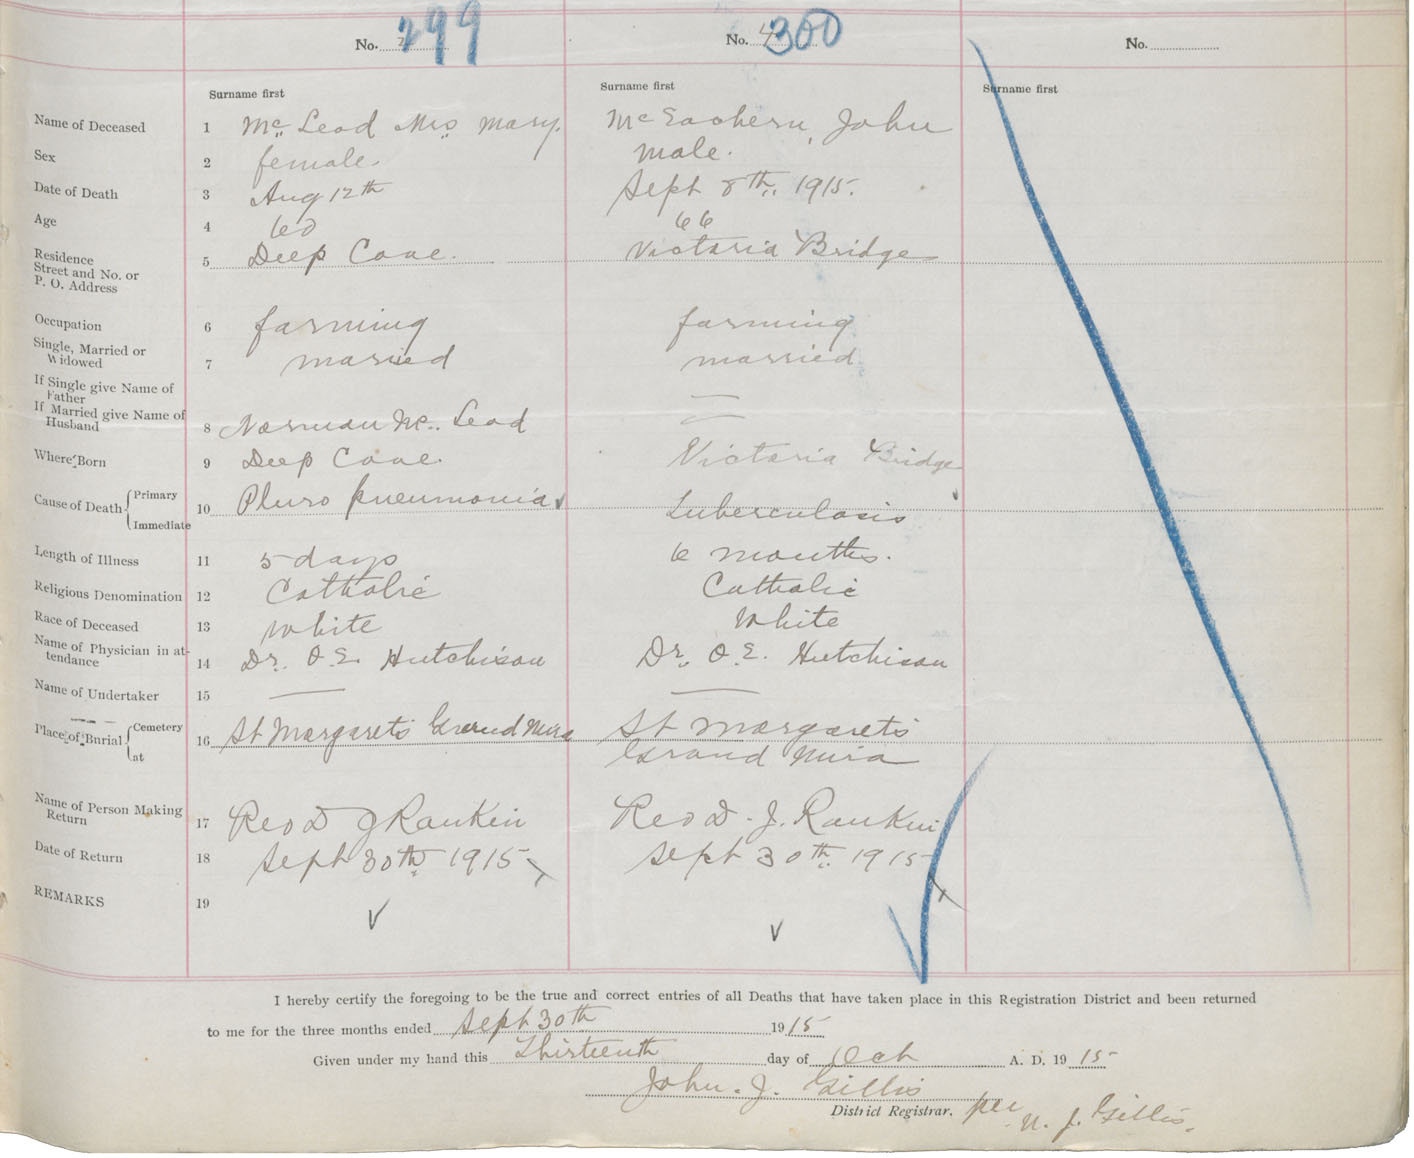 No. 299
No. 4 300
No.
Surname first
Surname first
Surname first
Name of Deceased 1 Mc Leod Mrs Mary. McEachern, John
Sex 2 female. male.
Date of Death 3 Aug 12th Sept 8th, 1915.
Age 4 60 66
Residence
Street and No. or
P. O. Address 5 Deep Cove. Victoria Bridge
Occupation 6 farming farming
Single, Married or
Widowed 7 married married
If Single give Name of
Father
If Married give Name of
Husband 8 Norman Mc. Leod
Where Born 9 Deep Cove. Victoria Bridge
Cause of Death { Primary
Immediate 10 Pluro pneumonia Tuberculosis
Length of Illness 11 5 days 6 months.
Religious Denomination 12 Catholic Catholic
Race of Deceased 13 White White
Name of Physician in at-
tendance 14 Dr. O.E. Hutchison Dr. O.E. Hutchison
Name of Undertaker 15
Place of Burial { Cemetery
at 16 St Margarets Grand Mira St Margarets
Grand Mira
Name of Person Making
Return 17 Rev D J Rankin Rev D. J. Rankin
Date of Return 18 Sept 30th 1915 Sept 30th 1915
REMARKS 19
I hereby certify the foregoing to be the true and correct entries of all Deaths that have taken place in this Registration District and been returned
to me for the three months ended Sept 30th 1915
Given under my hand this Thirteenth day of Oct A. D. 1915
John. J. Gillis
District Registrar. per
N. J. Gillis.